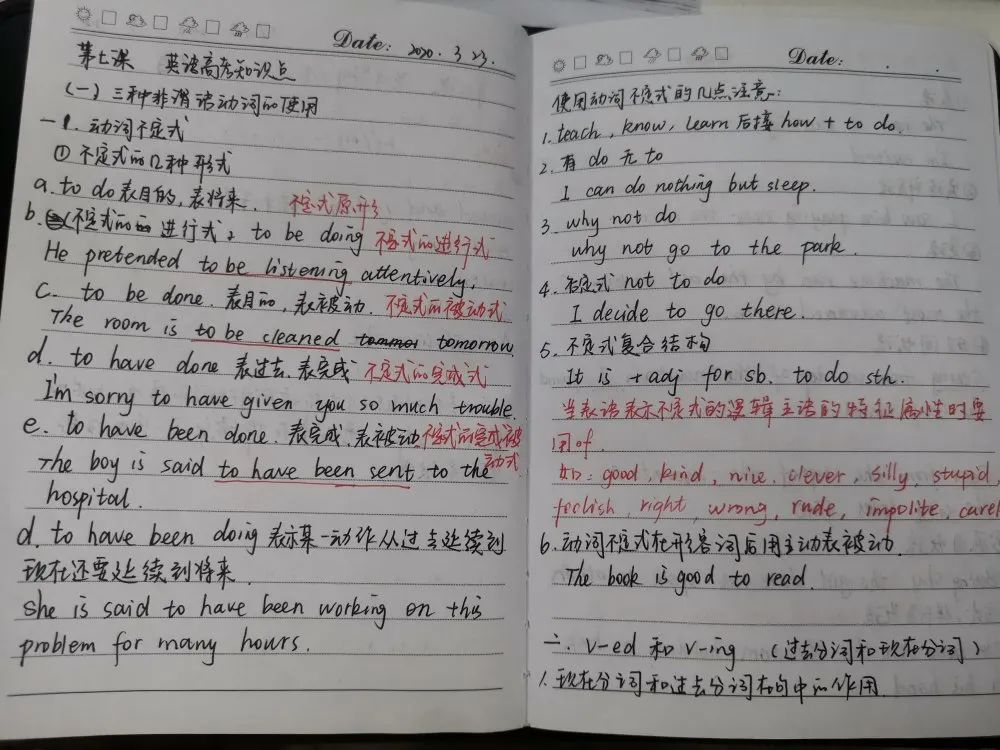 Date: 2020.3.23.
第七课 英语高考知识点
(一) 三种非谓语动词的使用
一1. 动词不定式
① 不定式的几种形式
a. to do 表目的, 表将来. 不定式原形
b. 不定式的 进行式, to be doing 不定式的进行式
He pretended to be listening attentively,
c. to be done. 表目的, 表被动. 不定式的被动式
The room is to be cleaned tomorrow.
d. to have done 表过去, 表完成 不定式的完成式
I'm sorry to have given you so much trouble.
e. to have been done. 表完成. 表被动 不定式的完成被
动式
The boy is said to have been sent to the
hospital.
d. to have been doing 表示某一动作从过去延续到
现在还要延续到将来.
she is said to have been working on this
problem for many hours.
Date: . .
使用动词不定式的几点注意:
1. teach, know, learn 后接 how + to do.
2. 有 do 无 to
I can do nothing but sleep.
3 why not do
why not go to the park.
4. 否定式 not to do
I decide to go there.
5. 不定式复合结构
It is +adj for sb. to do sth.
当表语表示不定式的逻辑主语的特征属性时要
用of.
如: good, kind, nice, clever, silly, stupid,
foolish, right, wrong, rude, impolite, carel
6. 动词不定式在形容词后用主动表被动.
The book is good to read.
二. v-ed 和 v-ing (过去分词和现在分词)
1. 现在分词和过去分词在句中的作用.